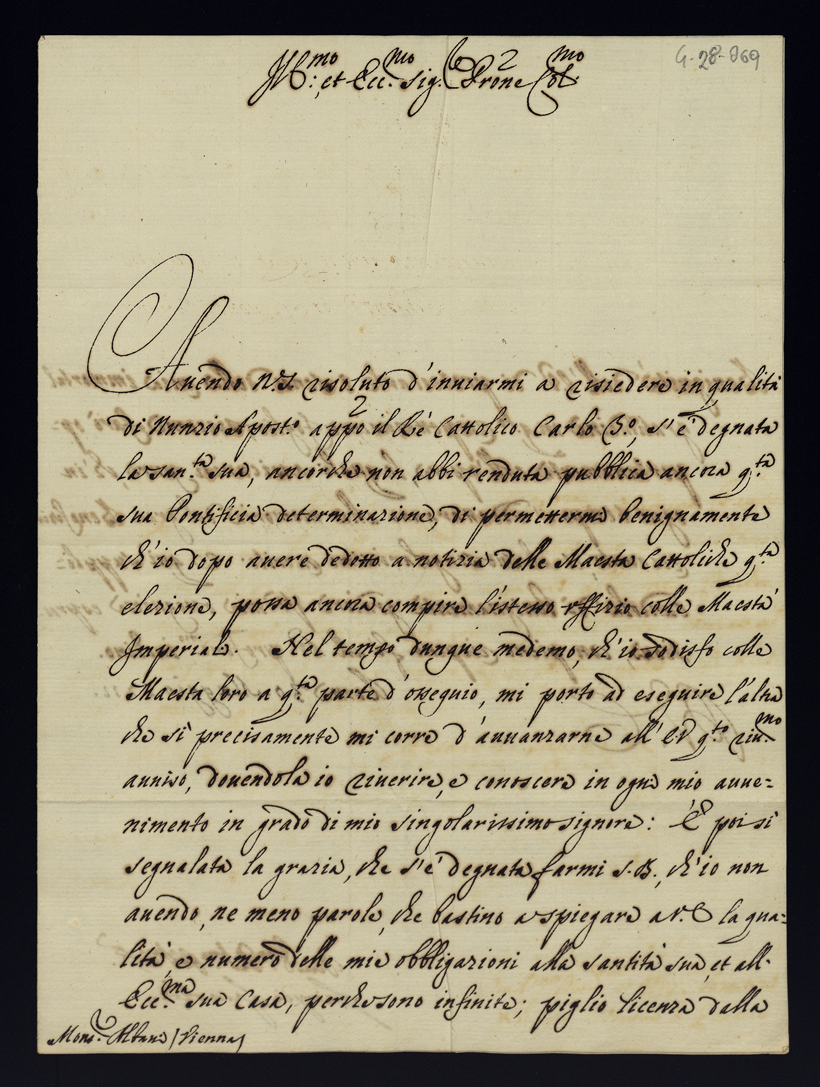 G-28-869
Ill:mo et Ecc.mo Sig.re Prone Col.mo
Avendo N.S. risoluto d'inviarmi a risiedere in qualità
di Nunzio Apost.o appo il Rè Cattolico Carlo 3.o, s'è degnata
la san.tà sua, ancorche non abbi renduta pubblica ancora q.ta
sua Pontificia determinazione, di permettermi benignamente
ch'io dopo avere dedotto a notizia delle Maestà Cattoliche q.ta
elezione, possa ancora compire l'istesso uffizio colle Maestà
Imperiali. Nel tempo dunque medemo, ch'io sodisfo colle
Maestà loro a q.ta parte d'ossequio, mi porto ad eseguire l'altra
che si precisamente mi corre d'avvanzarne all'E.V. q.to riv.mo
avviso, dovendola io riverire, e conoscere in ogni mio avve=
nimento in grado di mio singolarissimo signore: E' poi sì
segnalata la grazia, che s'è degnata farmi S.B., ch'io non
avendo, ne meno parole, che bastino a spiegare a V.E. la qua=
lità, e numero delle mie obbligazioni alla santità sua, et all'
Ecc.ma sua Casa, perche sono infinite; piglio licenza dalla
Mons.r Albani / Vienna /